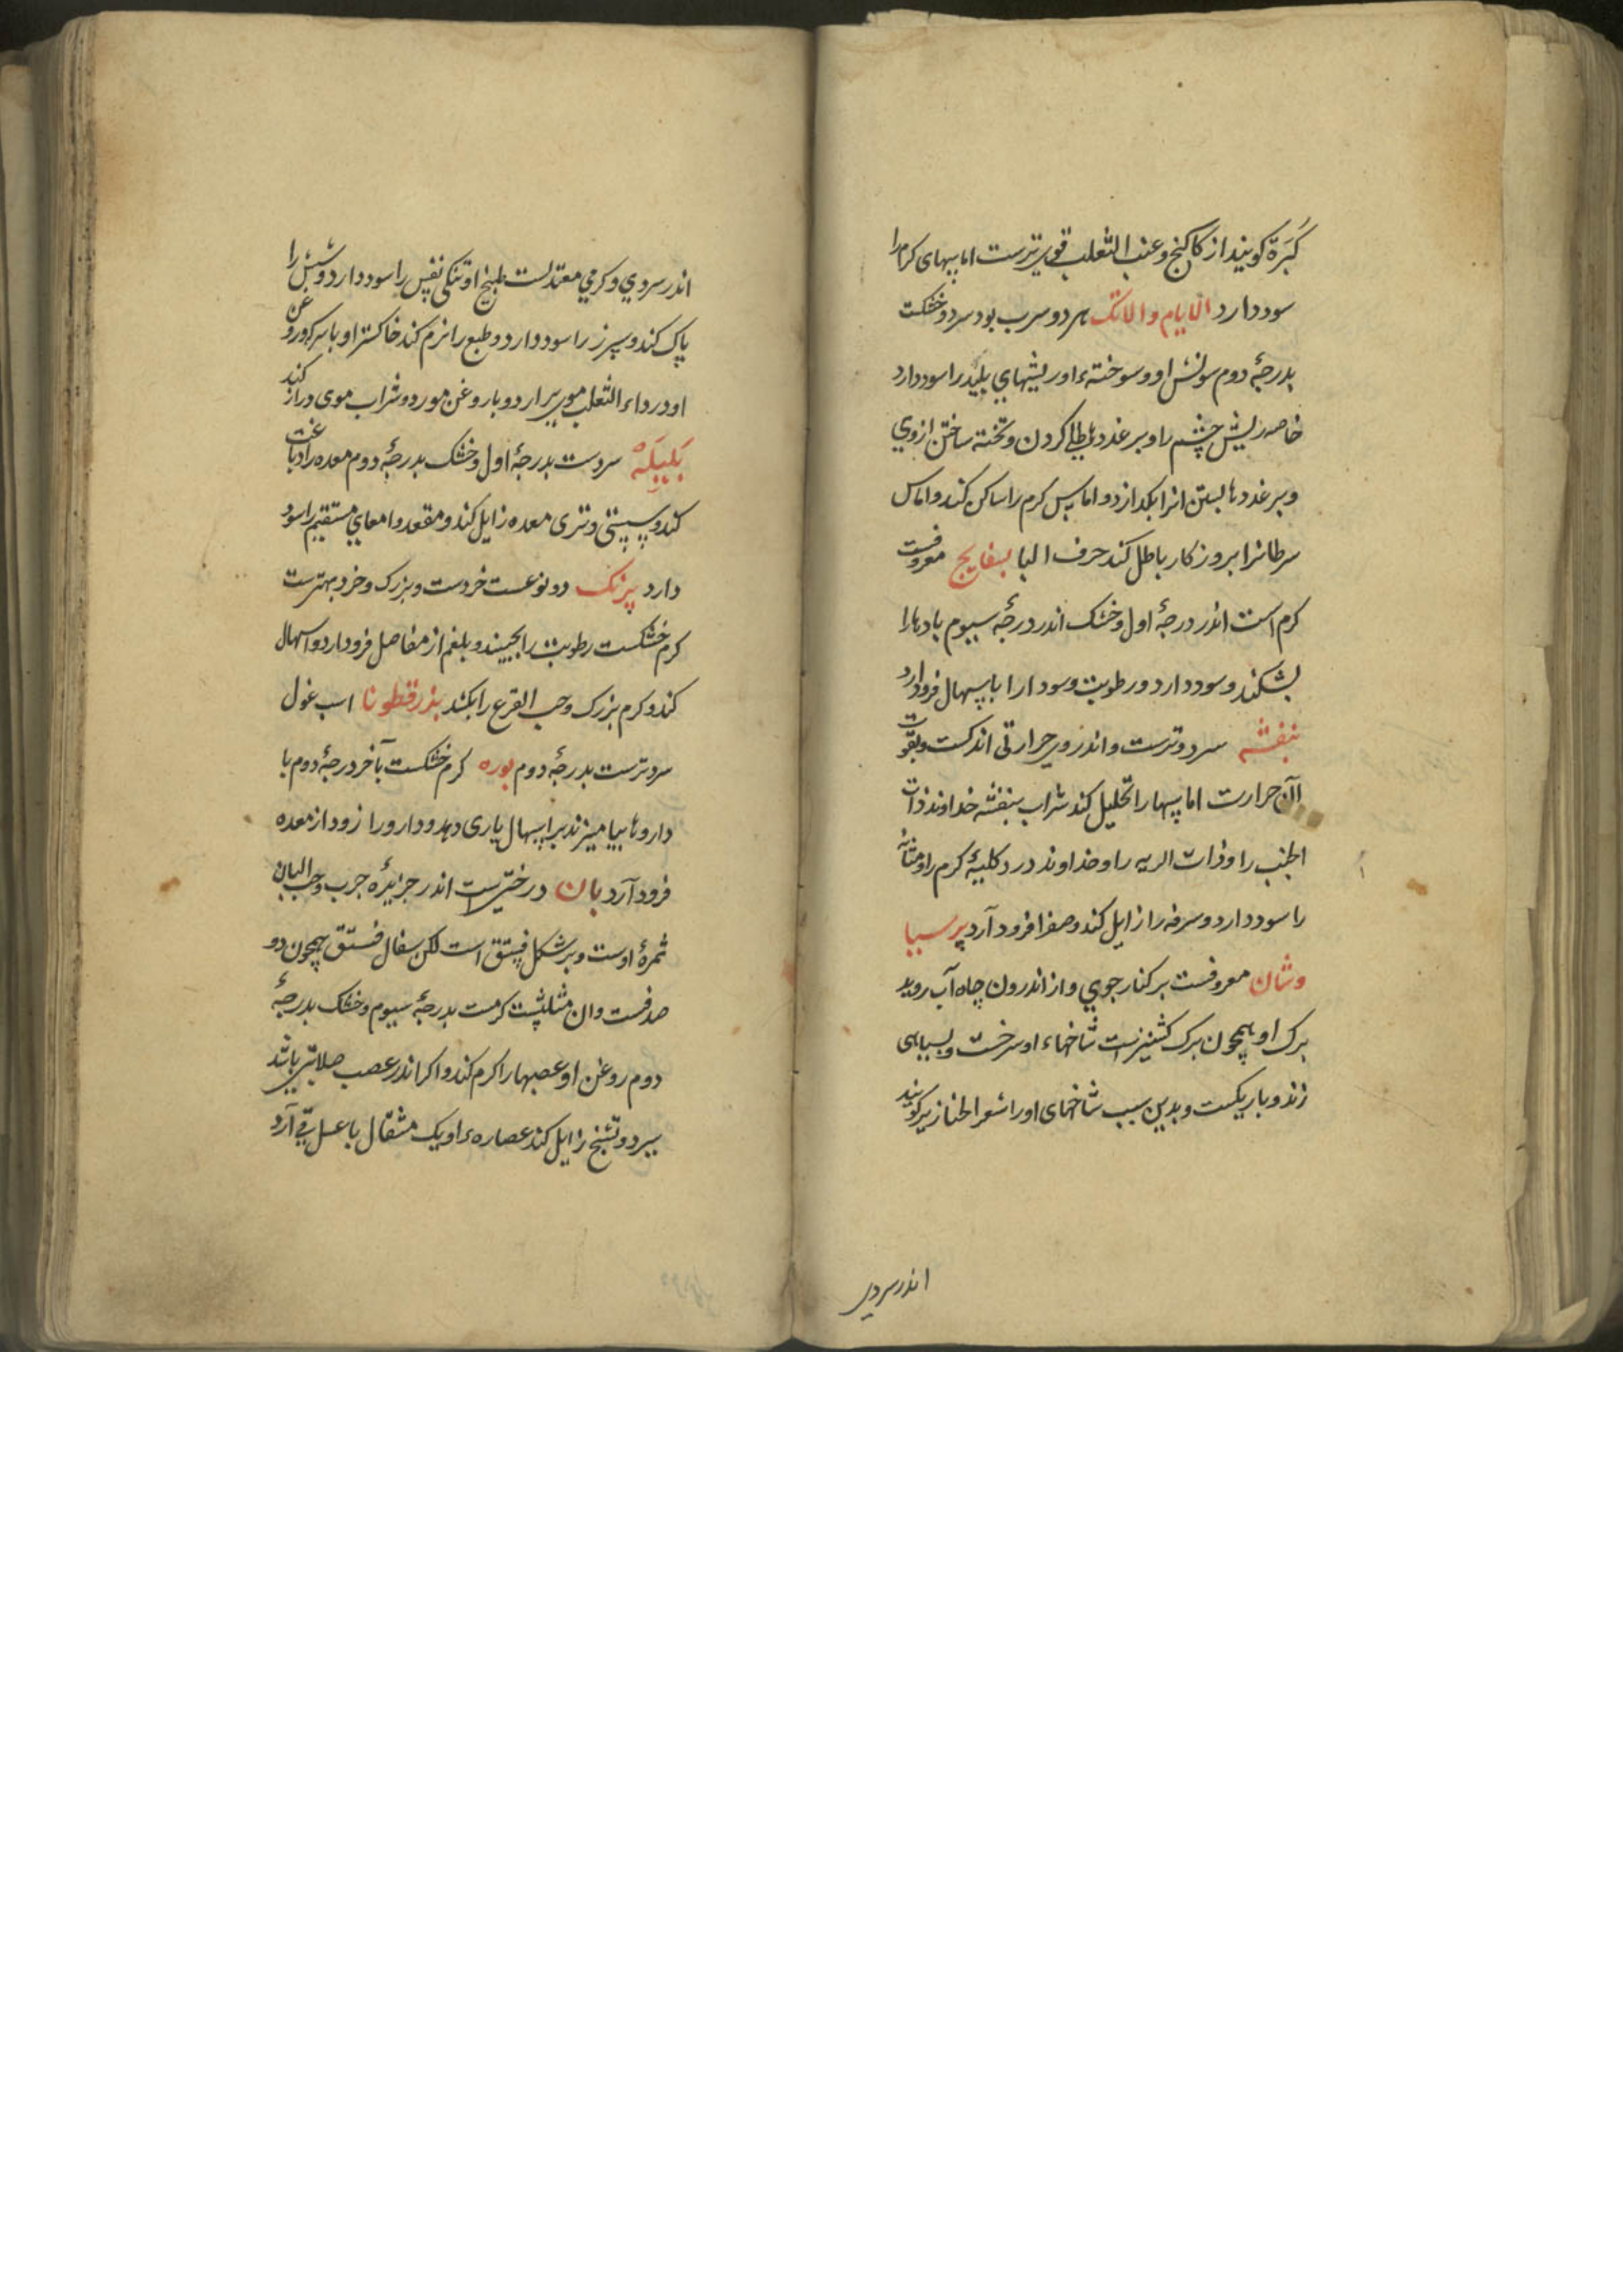 کَبَرَة کویند از کاکنج و عنب الثعلب قوی ترست اماسهای کرم را
سود دارد الایام والانک هر دو سرب بود سرد و خشکت
بدرجهٔ دوم سونش او و سوختهء او ریشهای پلید را سود دارد
خاصه ریش چشم را و بر غددها طلی کردن و تخته ساختن از وی
و بر غددها بستن انرا بکدازد و اماس کرم را ساکن کند و اماس
سرطانرا بروزکار باطل کند حرف البا بسفایج معروفست
کرم است اندر درجهٔ اول و خشک اندر درجهٔ سیوم بادها را
بشکند و سود دارد و رطوبت و سودا را باسهال فرود آرد
بنفشه سرد و ترست و اندر وی حرارتی اندکست و بقوت
آن حرارت اماسها را تحلیل کند شراب بنفشه خداوند ذات
الجنب را و ذات الریه را و خداوند درد کلیهٔ کرم را و مثانه
را سود دارد و سرفه را زایل کند و صفرا فرود آرد پرسیا
وشان معروفست بر کنار جوی و از اندرون چاه آب روید
برک او همچون برک کشنیزست شاخهاء او سرخست و بسیاهی
زند و باریکست و بدین سبب شاخهای او را شعر الخنازیر کویند
اندر سردی
اندر سردی و کرمی معتدلست طبیخ او تنکی نفس را سود دارد و شش را
پاک کند و سپرز را سود دارد و طبع را نرم کند خاکستر او با سرکه و روغن
او در داء الثعلب موی برارد و با روغن مورد و شراب موی دراز کند
بَلیلَه سردست بدرجهٔ اول و خشک بدرجهٔ دوم معده را دباغت
کند و سستی و تری معده زایل کند و مقعد و امعای مستقیم را سود
دارد پرنک دو نوعست خردست و بزرک و خرد بهترست
کرم خشکست رطوبت را بچیند و بلغم از مفاصل فرود ارد و اسهال
کند و کرم بزرک و حب القرع را بکشد بذرقطونا اسب غول
سرد ترست بدرجهٔ دوم بوره کرم خشکست بآخر درجهٔ دوم با
داروها بیامیزند بر اسهال یاری دهد و دارو را زود از معده
فرود آرد بان درختیست اندر جزایرهٔ جرب و حب البان
ثمرهٔ اوست و بر شکل فستق است لکن سفال فستق همچون دو
صدفست و ان مثلثست کرمست بدرجهٔ سیوم و خشک بدرجهٔ
دوم روغن او عصبها را کرم کند و اکر اندر عصب صلابتی باشد
ببرد و تشنج زایل کند عصارهء او یک مثقال با عسل قی آرد